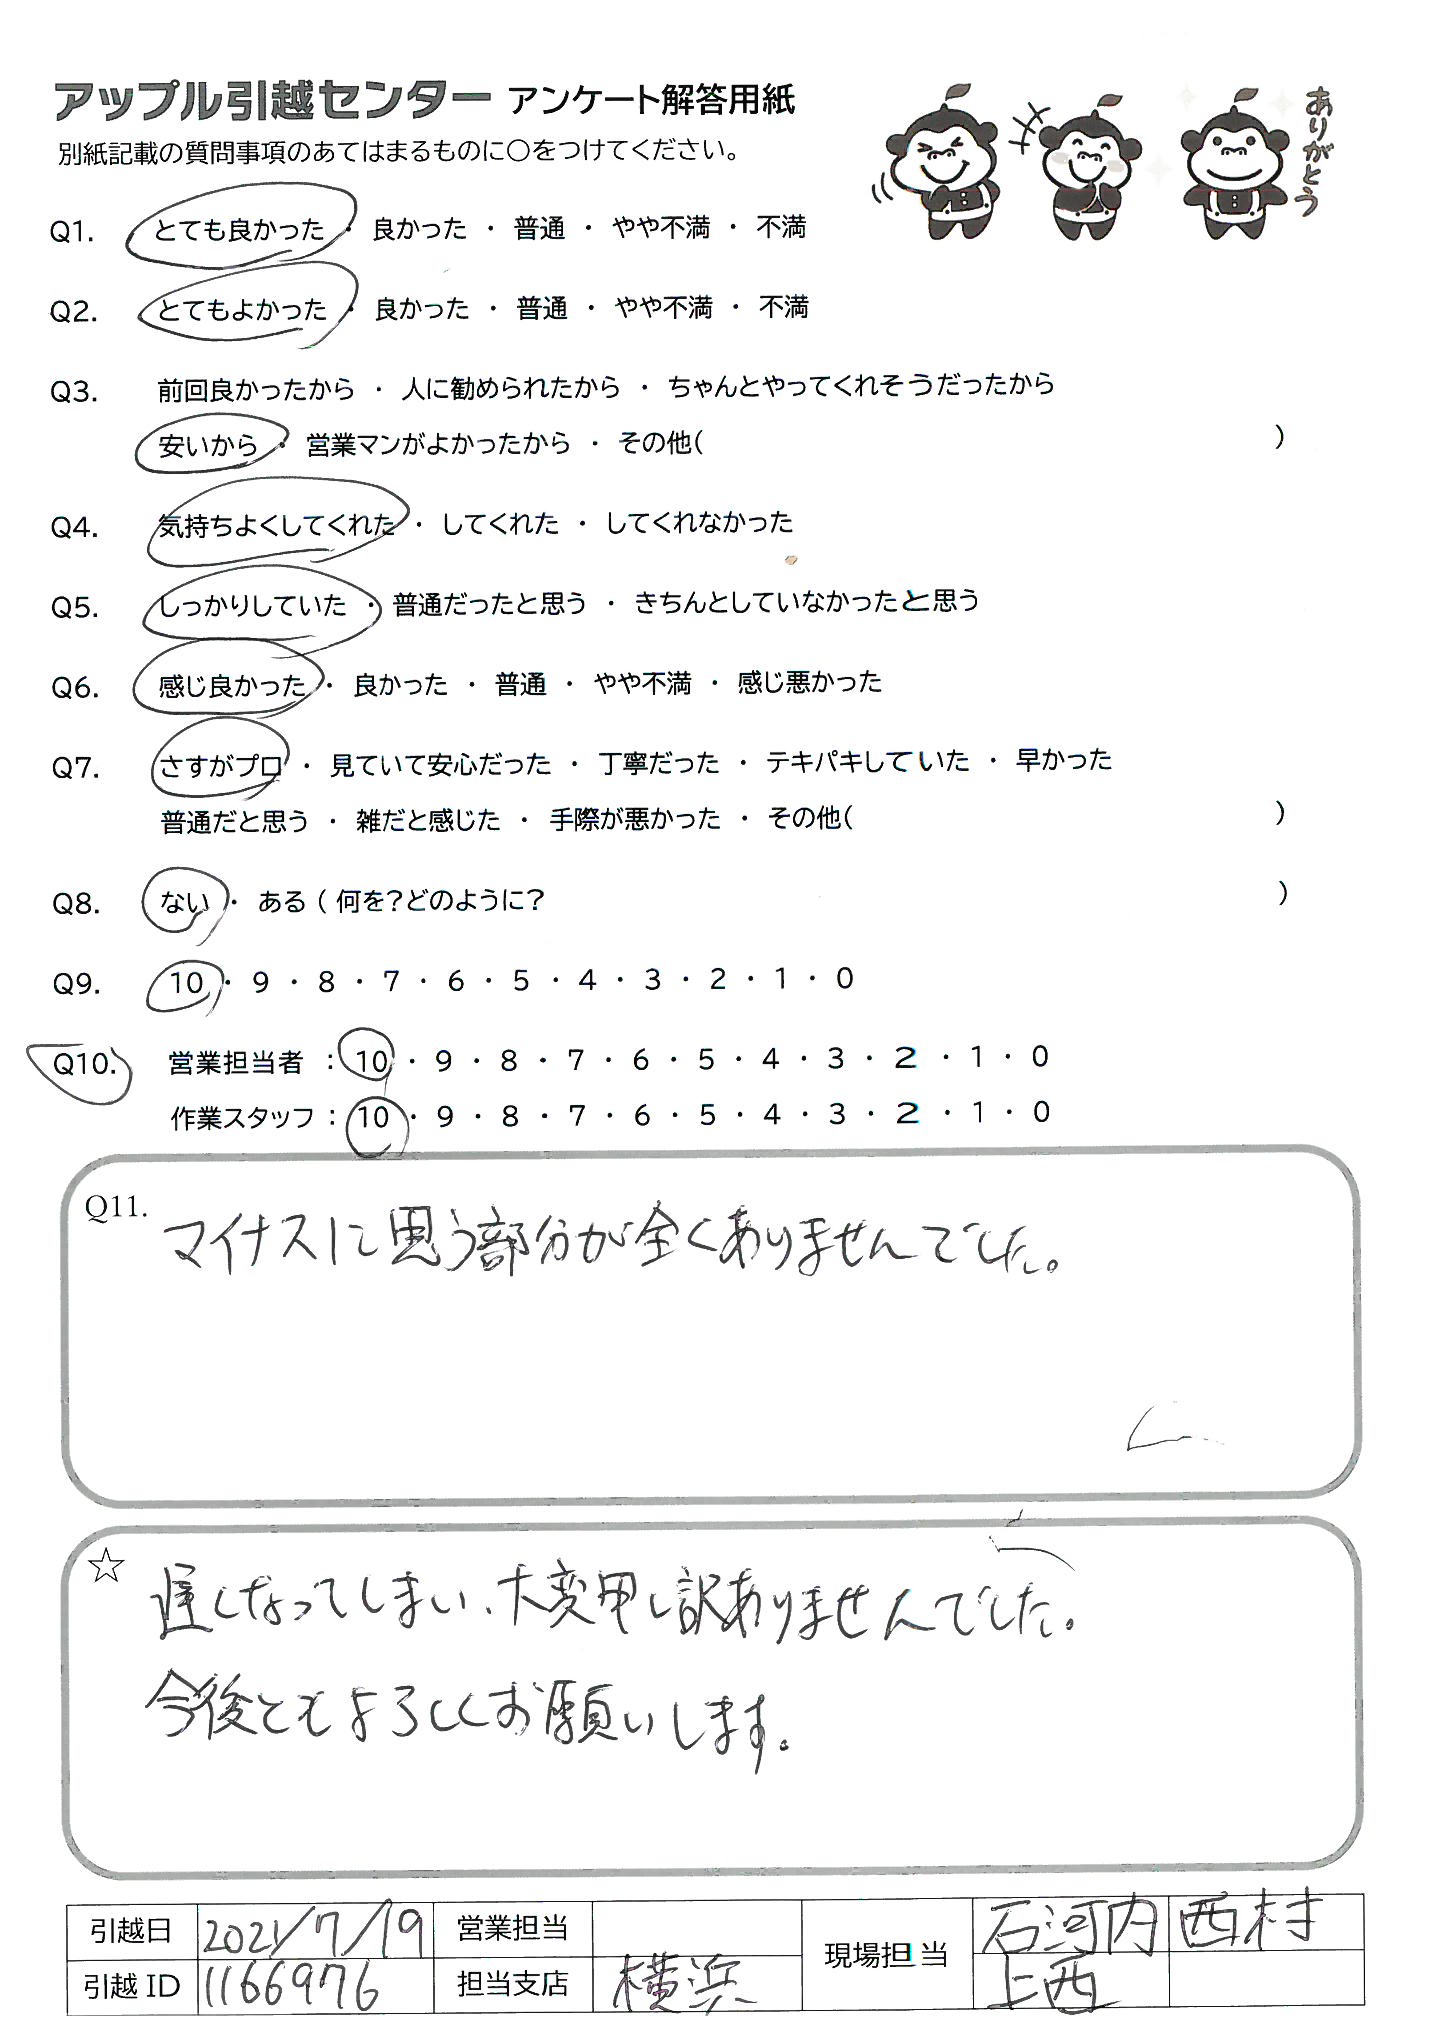 アップル引越センター アンケート解答用紙
別紙記載の質問事項のあてはまるものに○をつけてください。
ありがとう
Q1. とても良かった ・ 良かった ・ 普通 ・ やや不満 ・ 不満
Q2. とてもよかった ・ 良かった ・ 普通 ・ やや不満 ・ 不満
Q3. 前回良かったから ・ 人に勧められたから ・ ちゃんとやってくれそうだったから
安いから ・ 営業マンがよかったから ・ その他( )
Q4. 気持ちよくしてくれた ・ してくれた ・ してくれなかった
Q5. しっかりしていた ・ 普通だったと思う ・ きちんとしていなかったと思う
Q6. 感じ良かった ・ 良かった ・ 普通 ・ やや不満 ・ 感じ悪かった
Q7. さすがプロ ・ 見ていて安心だった ・ 丁寧だった ・ テキパキしていた ・ 早かった
普通だと思う ・ 雑だと感じた ・ 手際が悪かった ・ その他( )
Q8. ない ・ ある ( 何を?どのように? )
Q9. 10 ・ 9 ・ 8 ・ 7 ・ 6 ・ 5 ・ 4 ・ 3 ・ 2 ・ 1 ・ 0
Q10. 営業担当者 : 10 ・ 9 ・ 8 ・ 7 ・ 6 ・ 5 ・ 4 ・ 3 ・ 2 ・ 1 ・ 0
作業スタッフ : 10 ・ 9 ・ 8 ・ 7 ・ 6 ・ 5 ・ 4 ・ 3 ・ 2 ・ 1 ・ 0
Q11. マイナスに思う部分が全くありませんでした。
☆ 遅くなってしまい、大変申し訳ありませんでした。
今後ともよろしくお願いします。
引越日 2021/7/19 営業担当 現場担当 石河内 西村
引越ID 1166976 担当支店 横浜 上西